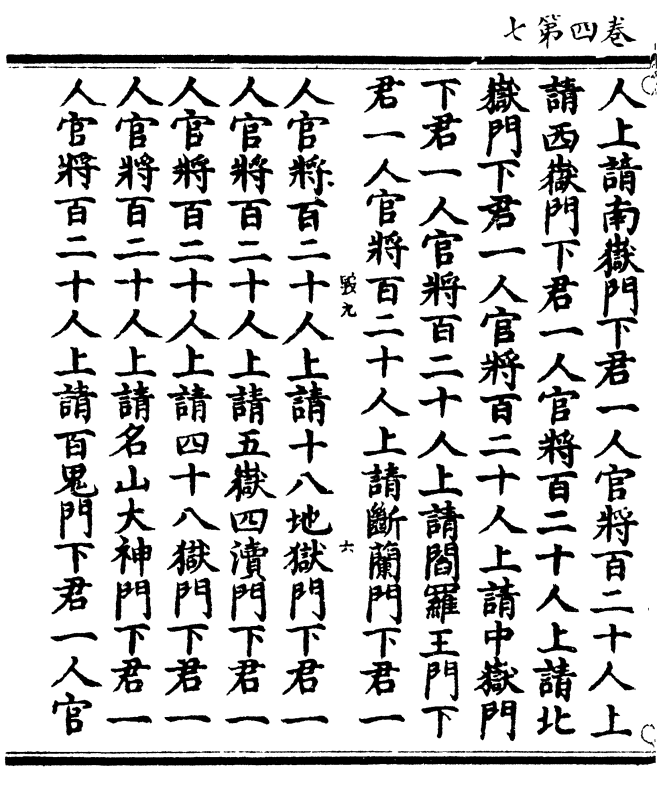 卷四第七
人上請南嶽門下君一人官將百二十人上
請西嶽門下君一人官將百二十人上請北
嶽門下君一人官將百二十人上請中嶽門
下君一人官將百二十人上請閻羅王門下
君一人官將百二十人上請斷蘭門下君一
毀九
六
人官將百二十人上請十八地獄門下君一
人官將百二十人上請五嶽四瀆門下君一
人官將百二十人上請四十八獄門下君一
人官將百二十人上請名山大神門下君一
人官將百二十人上請百鬼門下君一人官